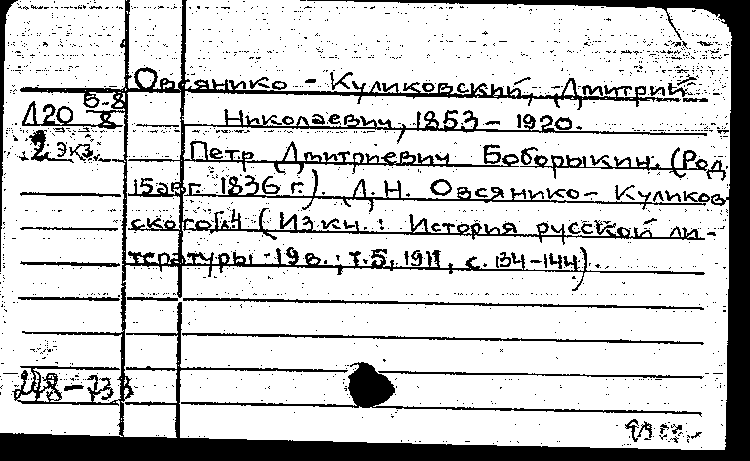 Овсянико-Куликовский, Дмитрий
Л20 Б-8/8 Николаевич, 1853-1920.
2 экз. Петр Дмитриевич Боборыкин. (Род.
15 авг. 1836 г.). Д. Н. Овсянико-Куликов-
ского. (Из кн.: История русской ли-
тературы 19 в.; т. 5, 1911, с. 134-144).